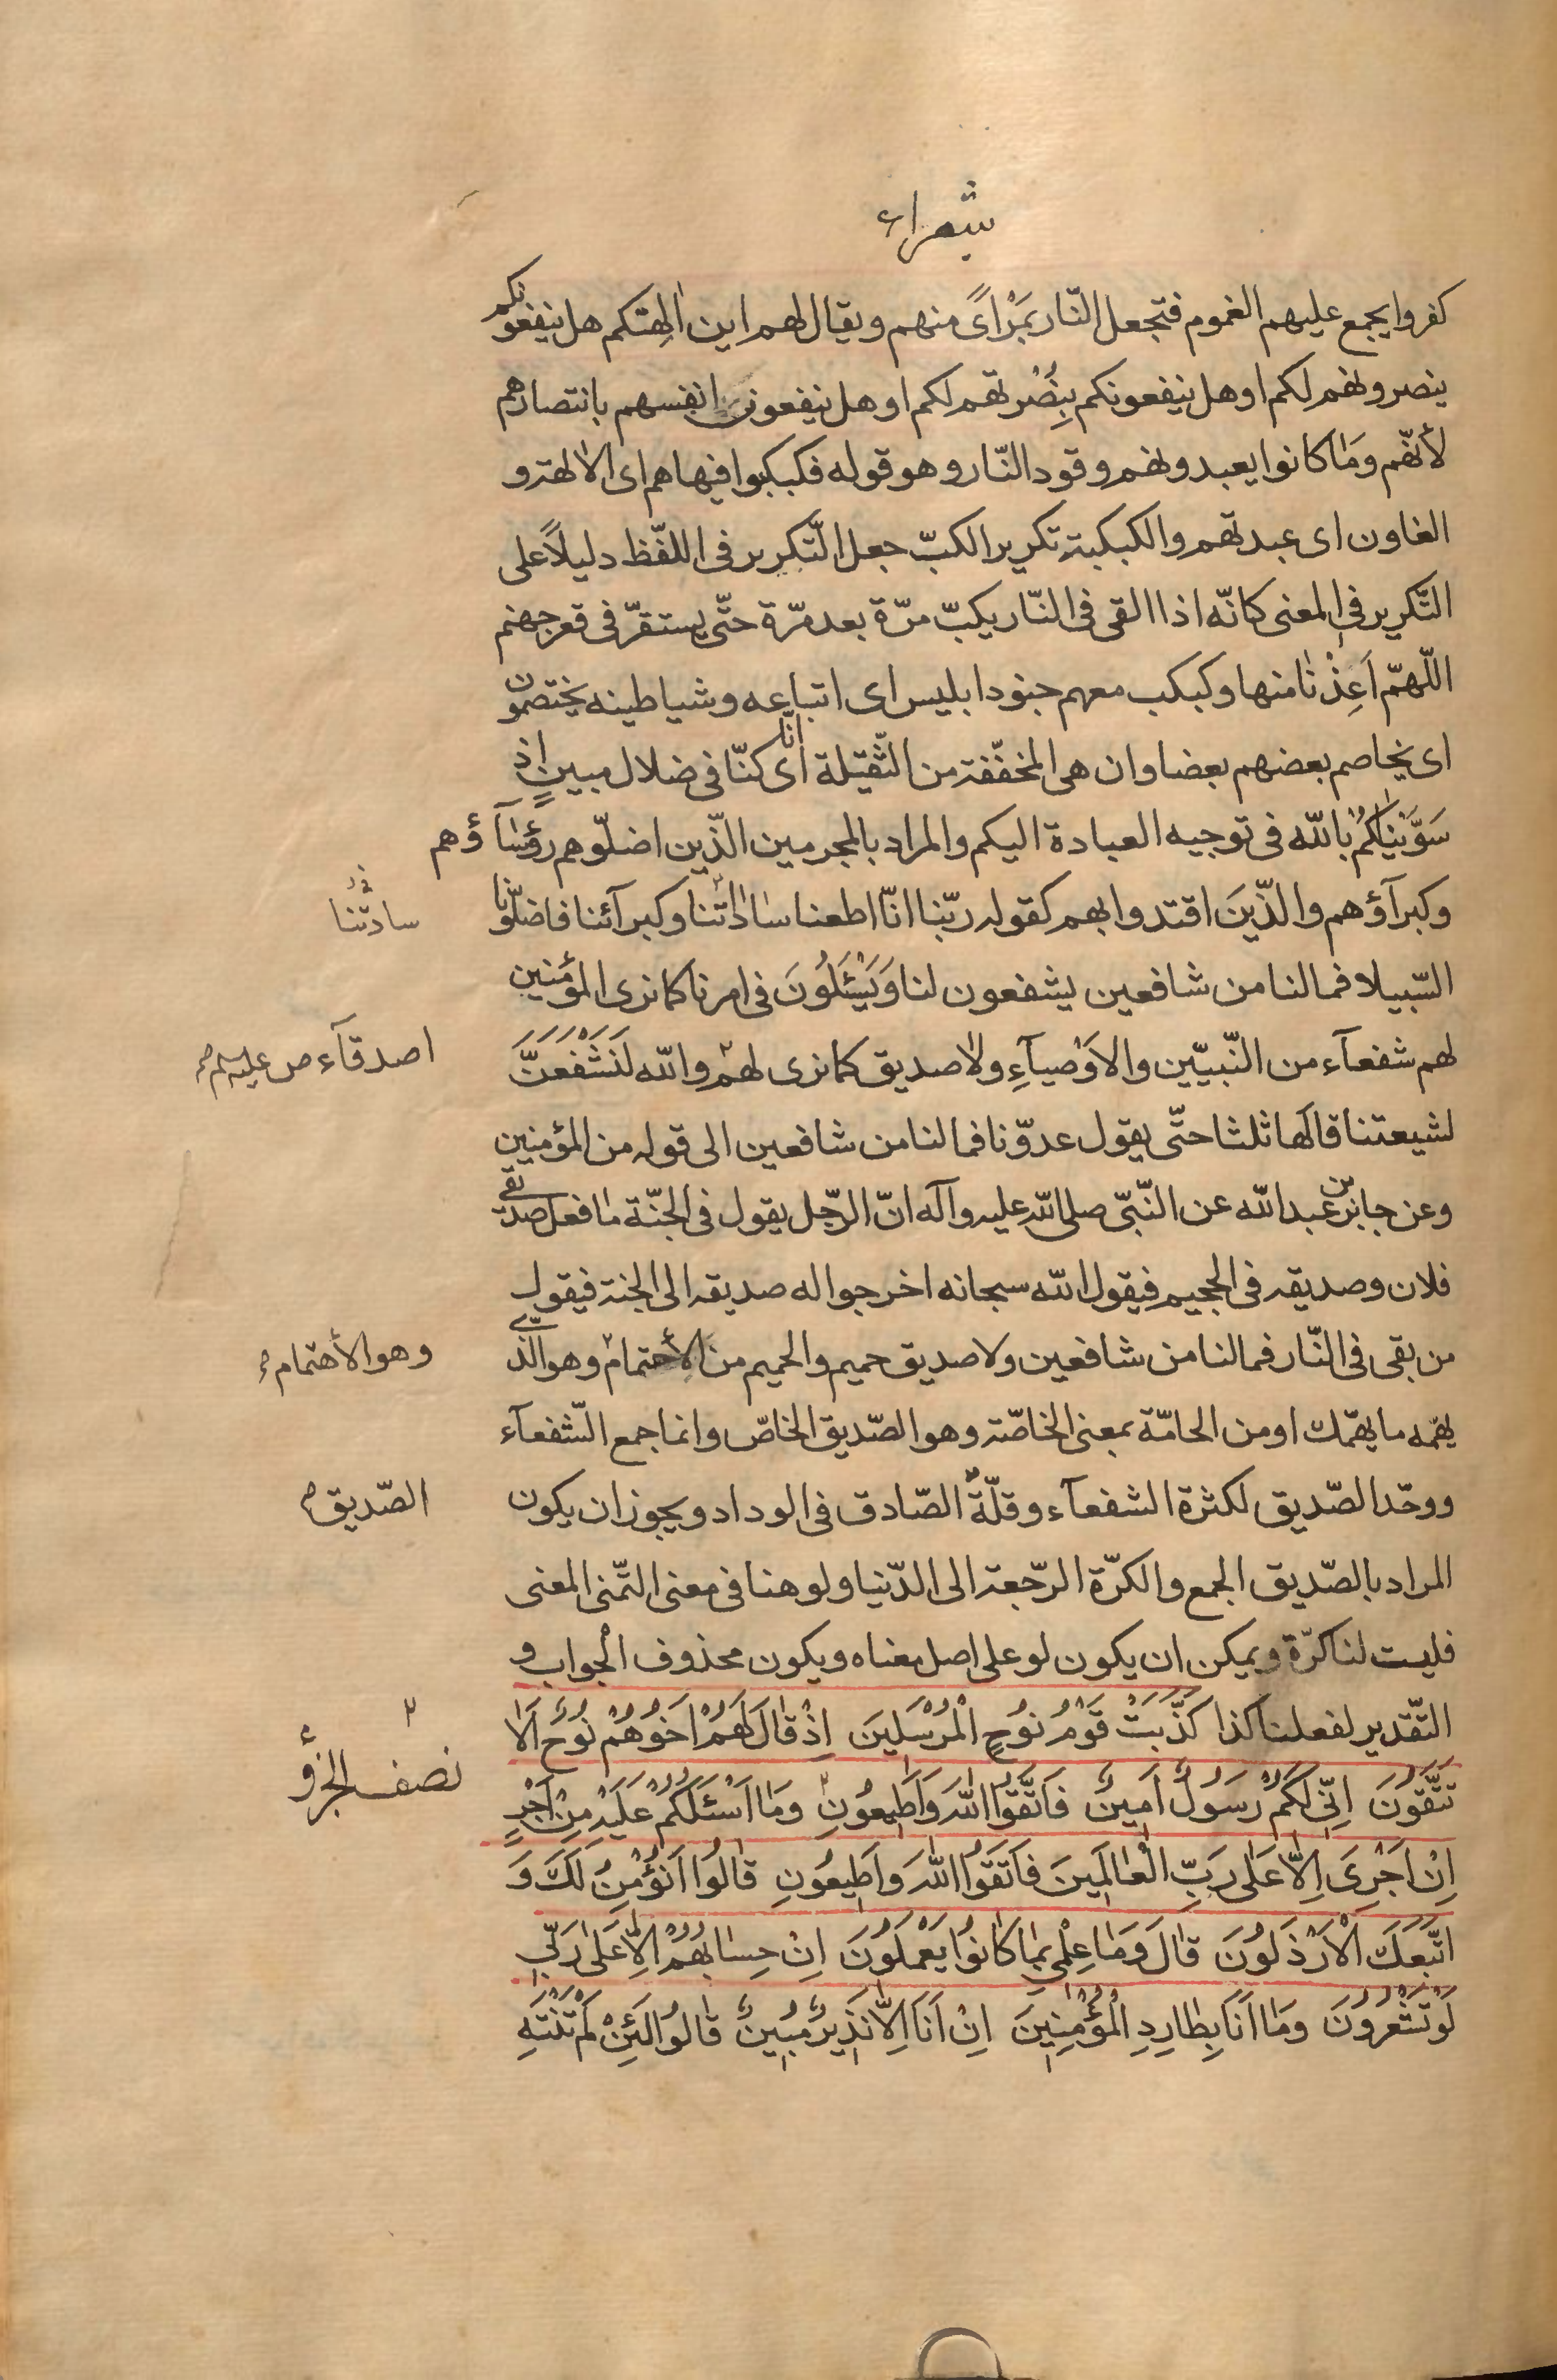 شعراء
كفروا يجمع عليهم الغموم فتجعل النّار بمَرْاًى منهم ويقال لهم اين اٰلهتكم هل ينفعونكم
بنصرونهم لكم او هل ينفعونكم بِنُصْرتهم لكم او هل ينفعون انفسهم بانتصارهم
لأنّهم ومٰا كانوا يعبدونهم وقود النّار وهو قوله فكبكبوا فيها هم اى الاٰلهة و
الغاون اى عبدتهم والكبكبة تكرير الكبّ جعل التّكرير فى اللفّظ دليلاً على
التّكرير فى المعنى كانّه اذا القى فى النّار يكبّ مرّة بعد مرّة حتّى يستقرّ فى قعر جهنم
اللّهمّ اَعِذْنٰا منها وكبكب معهم جنود ابليس اى اتباعه وشياطينه يختصمون
اى يخاصم بعضهم بعضا وان هى المخفّفة من الثّقيلة اى انّا كنّا فى ضلال مبينٍ اذ
سَوَّيْنٰاكُمْ بالله فى توجيه العبادة اليكم والمراد بالمجرمين الذّين اضلّوهم رؤسٰآؤهم
وكبرآؤهم والذّينَ اقتدوا بهم كقوله ربّنا انّا اطعنا سٰادٰاتنا وكبرآئنا فاضلّونا
سادتنا
السّبيلا فما لنا من شافعين يشفعون لنا وَيَسْئَلُونَ فى امرنا كما نرى المؤمنين
لهم شفعآء من النّبيّين والاَوْصيآءِ ولاٰ صديق كما نرى لهم والله لَنَشْفَعَنَّ
اصدقآء ص عليهم
لشيعتنا قالها ثلثا حتّى يقول عدوّنا فما لنا من شافعين الى قوله من المؤمنين
وعن جابر بن عبدالله عن النّبّى صلى الله عليه وآله انّ الرّجل يقول فى الجنّة مٰا فعل صديقى
فلان وصديقه فى الجحيم فيقول الله سبحانه اخرجوا له صديقه الى الجنة فيقول
من بقى فى النّار فما لنا من شافعين ولا صديق حميم والحميم من الأحتمام وهو الذى
وهو الأهتمام
يهمّه ما يهمّك او من الحامّة بمعنى الخاصّة وهو الصّديق الخاصّ وانما جمع الشّفعآء
ووحّد الصّديق لكثرة الشفعآء وقلّة الصّادق فى الوداد ويجوز ان يكون
الصّديق
المراد بالصّديق الجمع والكرّة الرّجعة الى الدّنيا ولو هنا فى معنى التّمنى المعنى
فليت لنا كرّة ويمكن ان يكون لو على اصل معناه ويكون محذوف الجواب و
التّقدير لفعلنا كذا كَذَّبَتْ قَوْمُ نوُحٍ الْمُرْسَلينَ اِذْ قٰالَ لَهُمْ اَخوُهُمْ نوُحٌ اَلاٰ
نصف الجزؤ
تَتَّقوُنَ اِنّى لَكُمْ رَسوُلٌ اَمينٌ فَاتَّقوُا اللهَ وَاَطيعوُنِ وَمٰا اَسْئَلُكُمْ عَلَيْهِ مِنْ اَجْرٍ
اِنْ اَجْرِىَ اِلاّٰ عَلٰى رَبِّ الْعٰالَمينَ فَاتَّقوُا اللهَ وَاَطيعوُنِ قٰالوُا اَنُؤْمِنُ لَكَ وَ
اتَّبَعَكَ الْاَرْذَلوُنَ قٰالَ وَمٰا عِلْمى بِمٰا كٰانوُا يَعْمَلوُنَ اِنْ حِسٰابُهُمْ اِلاّٰ عَلٰى رَبّى
لَوْ تَشْعُروُنَ وَمٰا اَنَا بِطٰارِدِ الْمُؤْمِنينَ اِنْ اَنَا اِلاّٰ نَذيرٌ مُبينٌ قٰالوُا لَئِنْ لَمْ تَنْتَهِ